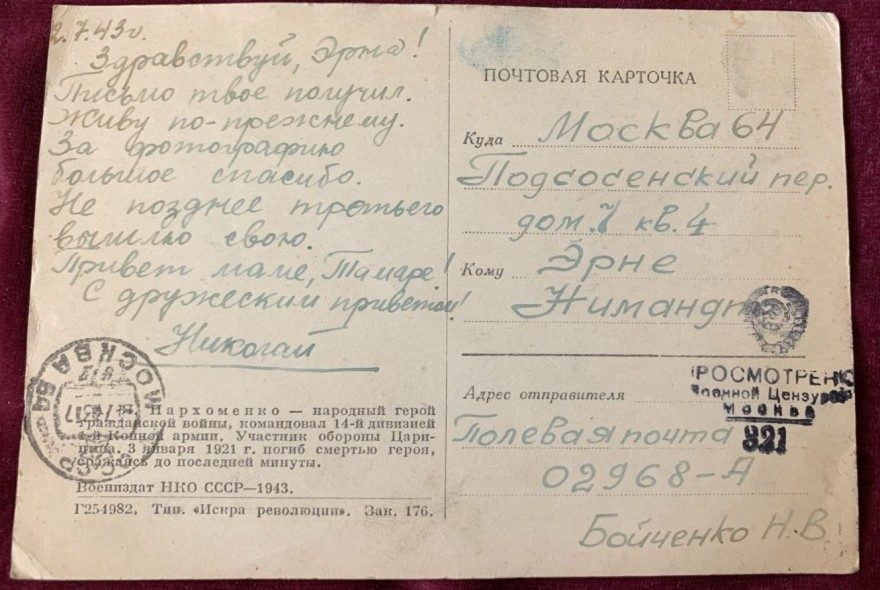 2.7.43г.
Здравствуй, Эрна!
Письмо твое получил.
Живу по-прежнему.
За фотографию
большое спасибо.
Не позднее третьего
вышлю свою.
Привет маме, Тамаре!
С дружеским приветом!
Николай
МОСКВА
СССР
Пархоменко — народный герой
гражданской войны, командовал 14-й дивизией
1-й Конной армии. Участник обороны Цари-
цина. 3 января 1921 г. погиб смертью героя,
сражаясь до последней минуты.
Воениздат НКО СССР—1943.
Г254982. Тип. «Искра революции». Зак. 176.
ПОЧТОВАЯ КАРТОЧКА
Куда Москва 64
Подсосенский пер.
дом. 7 кв. 4
Кому Эрне
Нимандт
ПРОСМОТРЕНО
Военной Цензурой
Москва
321
Адрес отправителя
Полевая почта
02968-А
Бойченко Н.В